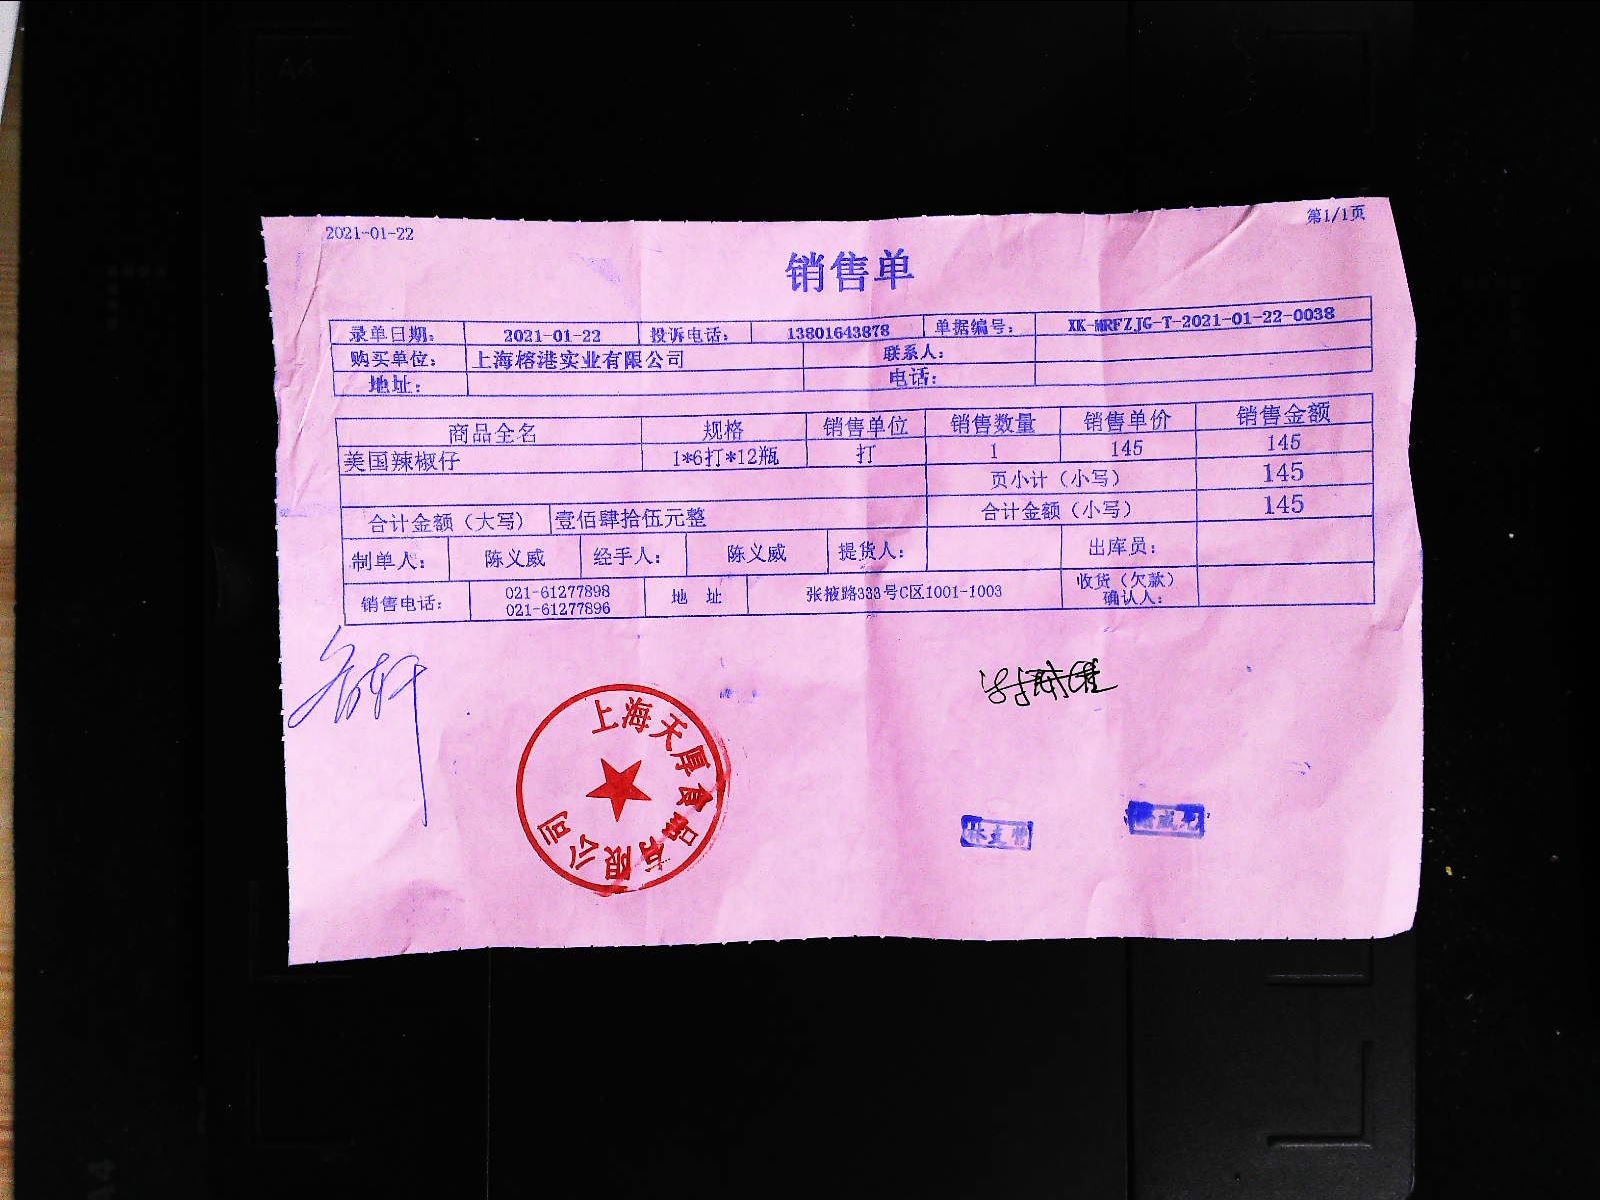 2021-01-22
第1/1页
销售单
录单日期： 2021-01-22 投诉电话： 13801643878 单据编号： XK-MRFZJG-T-2021-01-22-0038
购买单位： 上海榕港实业有限公司 联系人：
地址： 电话：
商品全名 规格 销售单位 销售数量 销售单价 销售金额
美国辣椒仔 1*6打*12瓶 打 1 145 145
页小计（小写） 145
合计金额（大写） 壹佰肆拾伍元整 合计金额（小写） 145
制单人： 陈义威 经手人： 陈义威 提货人： 出库员：
销售电话： 021-61277898 021-61277896 地 址 张掖路333号C区1001-1003 收货（欠款）确认人：
上海天厚食品有限公司